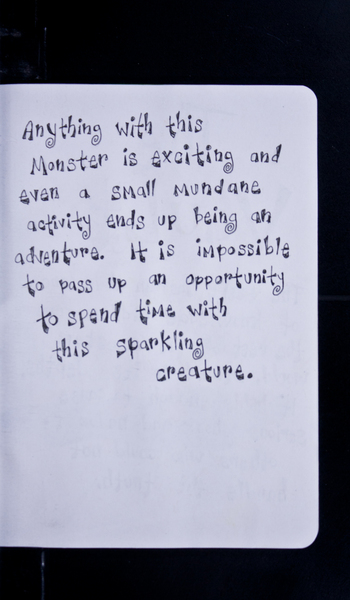 Anything with this
Monster is exciting and
even a small mundane
activity ends up being an
adventure. It is impossible
to pass up an opportunity
to spend time with
this sparkling
creature.